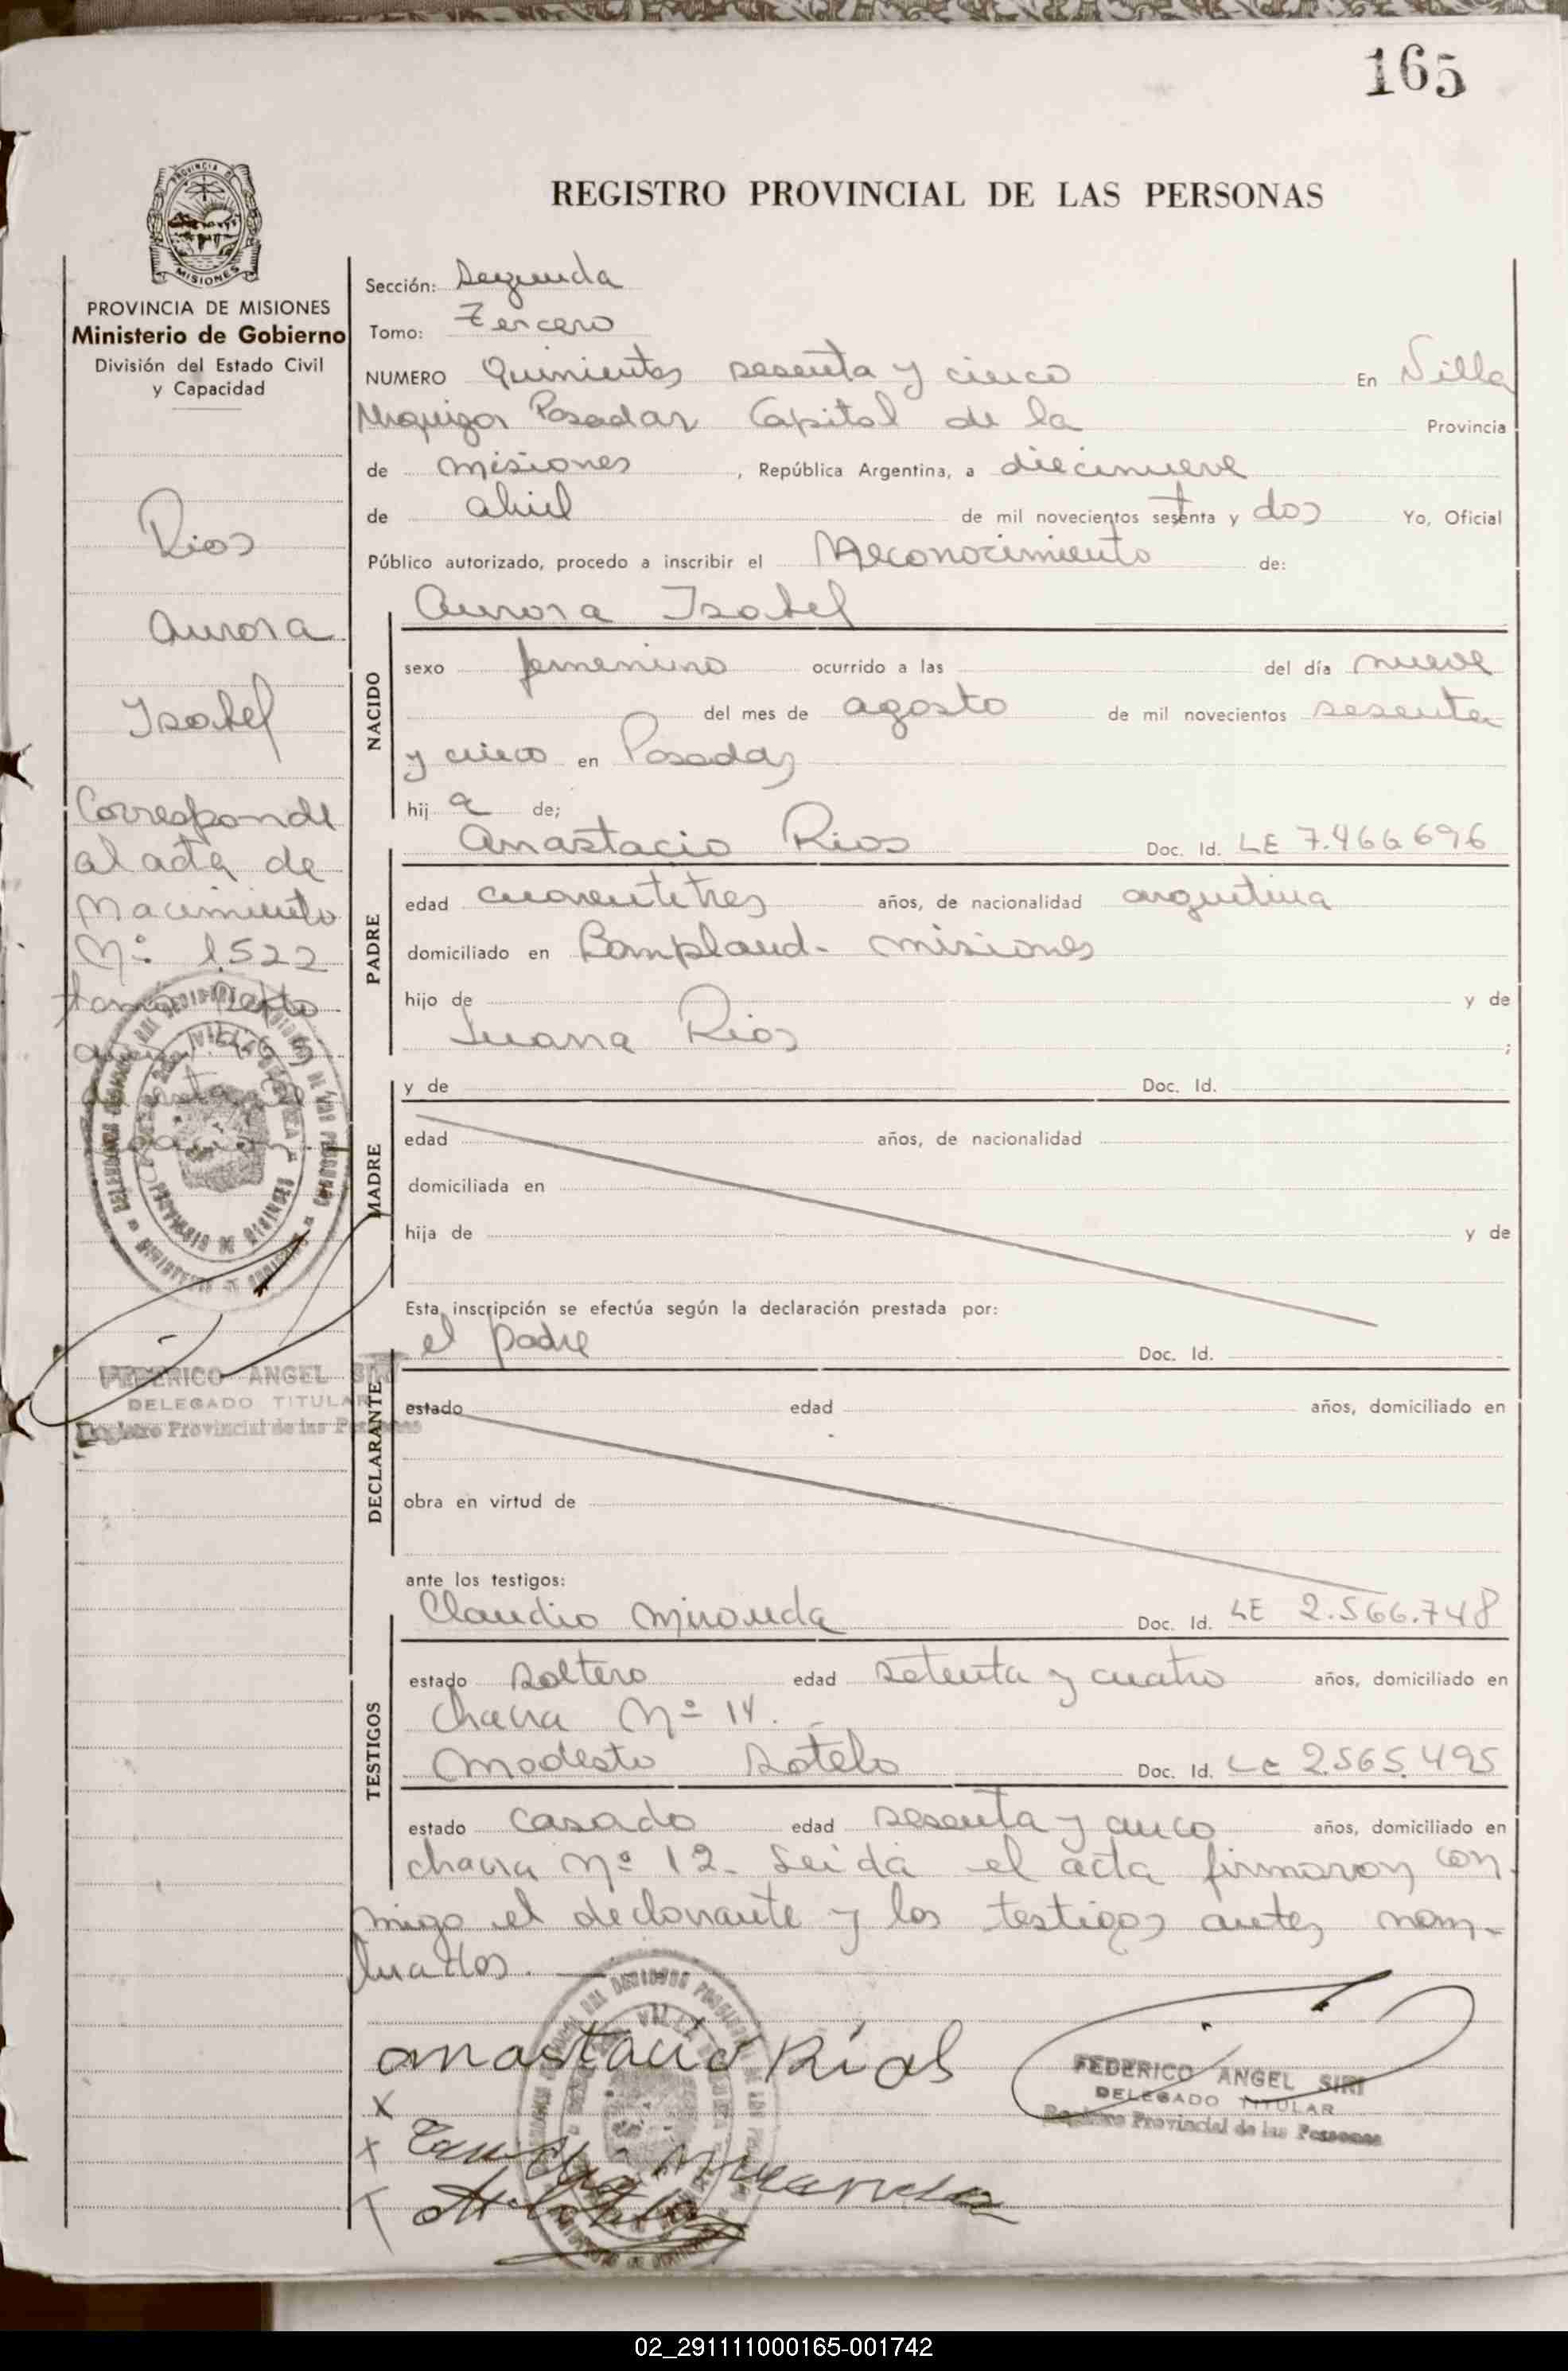 165
PROVINCIA DE
MISIONES
PROVINCIA DE MISIONES
Ministerio de Gobierno
División del Estado Civil
y Capacidad
Rios
Aurora
Isabel
Corresponde
al acta de
Nacimiento
Nº 1522
tomo
REGISTRO PROVINCIAL DE LAS PERSONAS
Sección: Segunda
Tomo: Tercero
NUMERO Quinientos sesenta y cinco En Villa
Urquiza Posadas Capital de la Provincia
de Misiones, República Argentina, a diecinueve
de abril de mil novecientos sesenta y dos Yo, Oficial
Público autorizado, procedo a inscribir el Reconocimiento de:
Aurora Isabel
NACIDO
sexo femenino ocurrido a las del día nueve
del mes de agosto de mil novecientos sesenta
y cinco en Posadas
hij a de;
PADRE
Anastacio Rios Doc. Id. LE 7.466.696
edad cuarentitres años, de nacionalidad argentina
domiciliado en Bompland - Misiones
hijo de y de
Juana Rios ;
MADRE
y de Doc. Id.
edad años, de nacionalidad
domiciliada en
hija de y de
Esta inscripción se efectúa según la declaración prestada por:
el padre Doc. Id.
DECLARANTE
estado edad años, domiciliado en
obra en virtud de
ante los testigos:
TESTIGOS
Claudio Miranda Doc. Id. LE 2.566.748
estado soltero edad setenta y cuatro años, domiciliado en
chacra Nº 14.
Modesto Sotelo Doc. Id. LE 2.565.495
estado casado edad sesenta y cinco años, domiciliado en
chacra Nº 12. Leida el acta firmaron con
migo el declarante y los testigos antes nom-
brados.
FEDERICO ANGEL SIRI
DELEGADO TITULAR
Registro Provincial de las Personas
anastacio Rios
x
x
FEDERICO ANGEL SIRI
DELEGADO TITULAR
Registro Provincial de las Personas
02_291111000165-001742